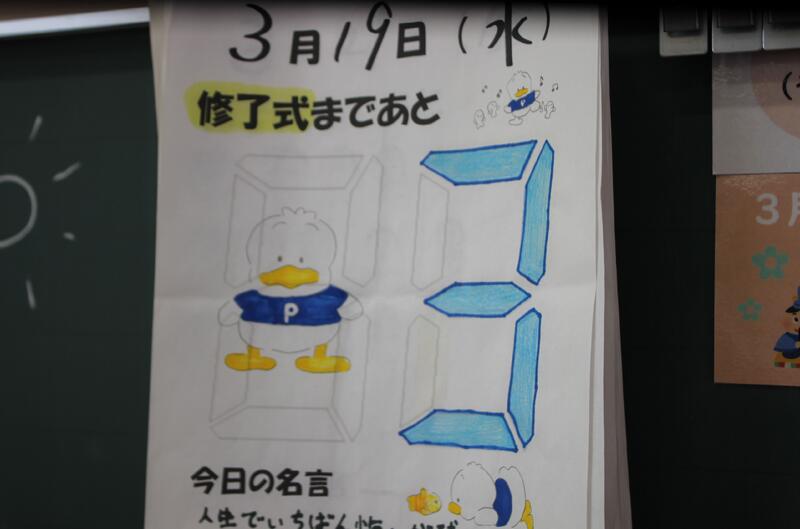 3月19日(水)
修了式まであと
3
P
今日の名言
人生でいちばん
3月